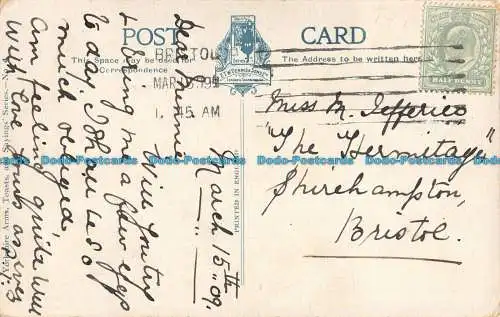 POST CARD
This Space may be used for
Correspondence
The Address to be written here
HALF PENNY
BRISTOL
MAR 15 09
1. 15 AM
Miss M. Jefferies
"The Hermitage"
Shirehampton,
Bristol.
March 15th 09.
Dear Minnie
Will you
& bring me a few eggs
to day I shall be so
much obliged.
Am feeling quite well
With love yours as ever
PRINTED IN ENGLAND
Yorkshire Arms, Toasts, and Sayings Series.
Dodo-Postcards Dodo-Postcards Dodo-Postcards Dodo-Postcards Dodo-Postcards Dodo-Postcards